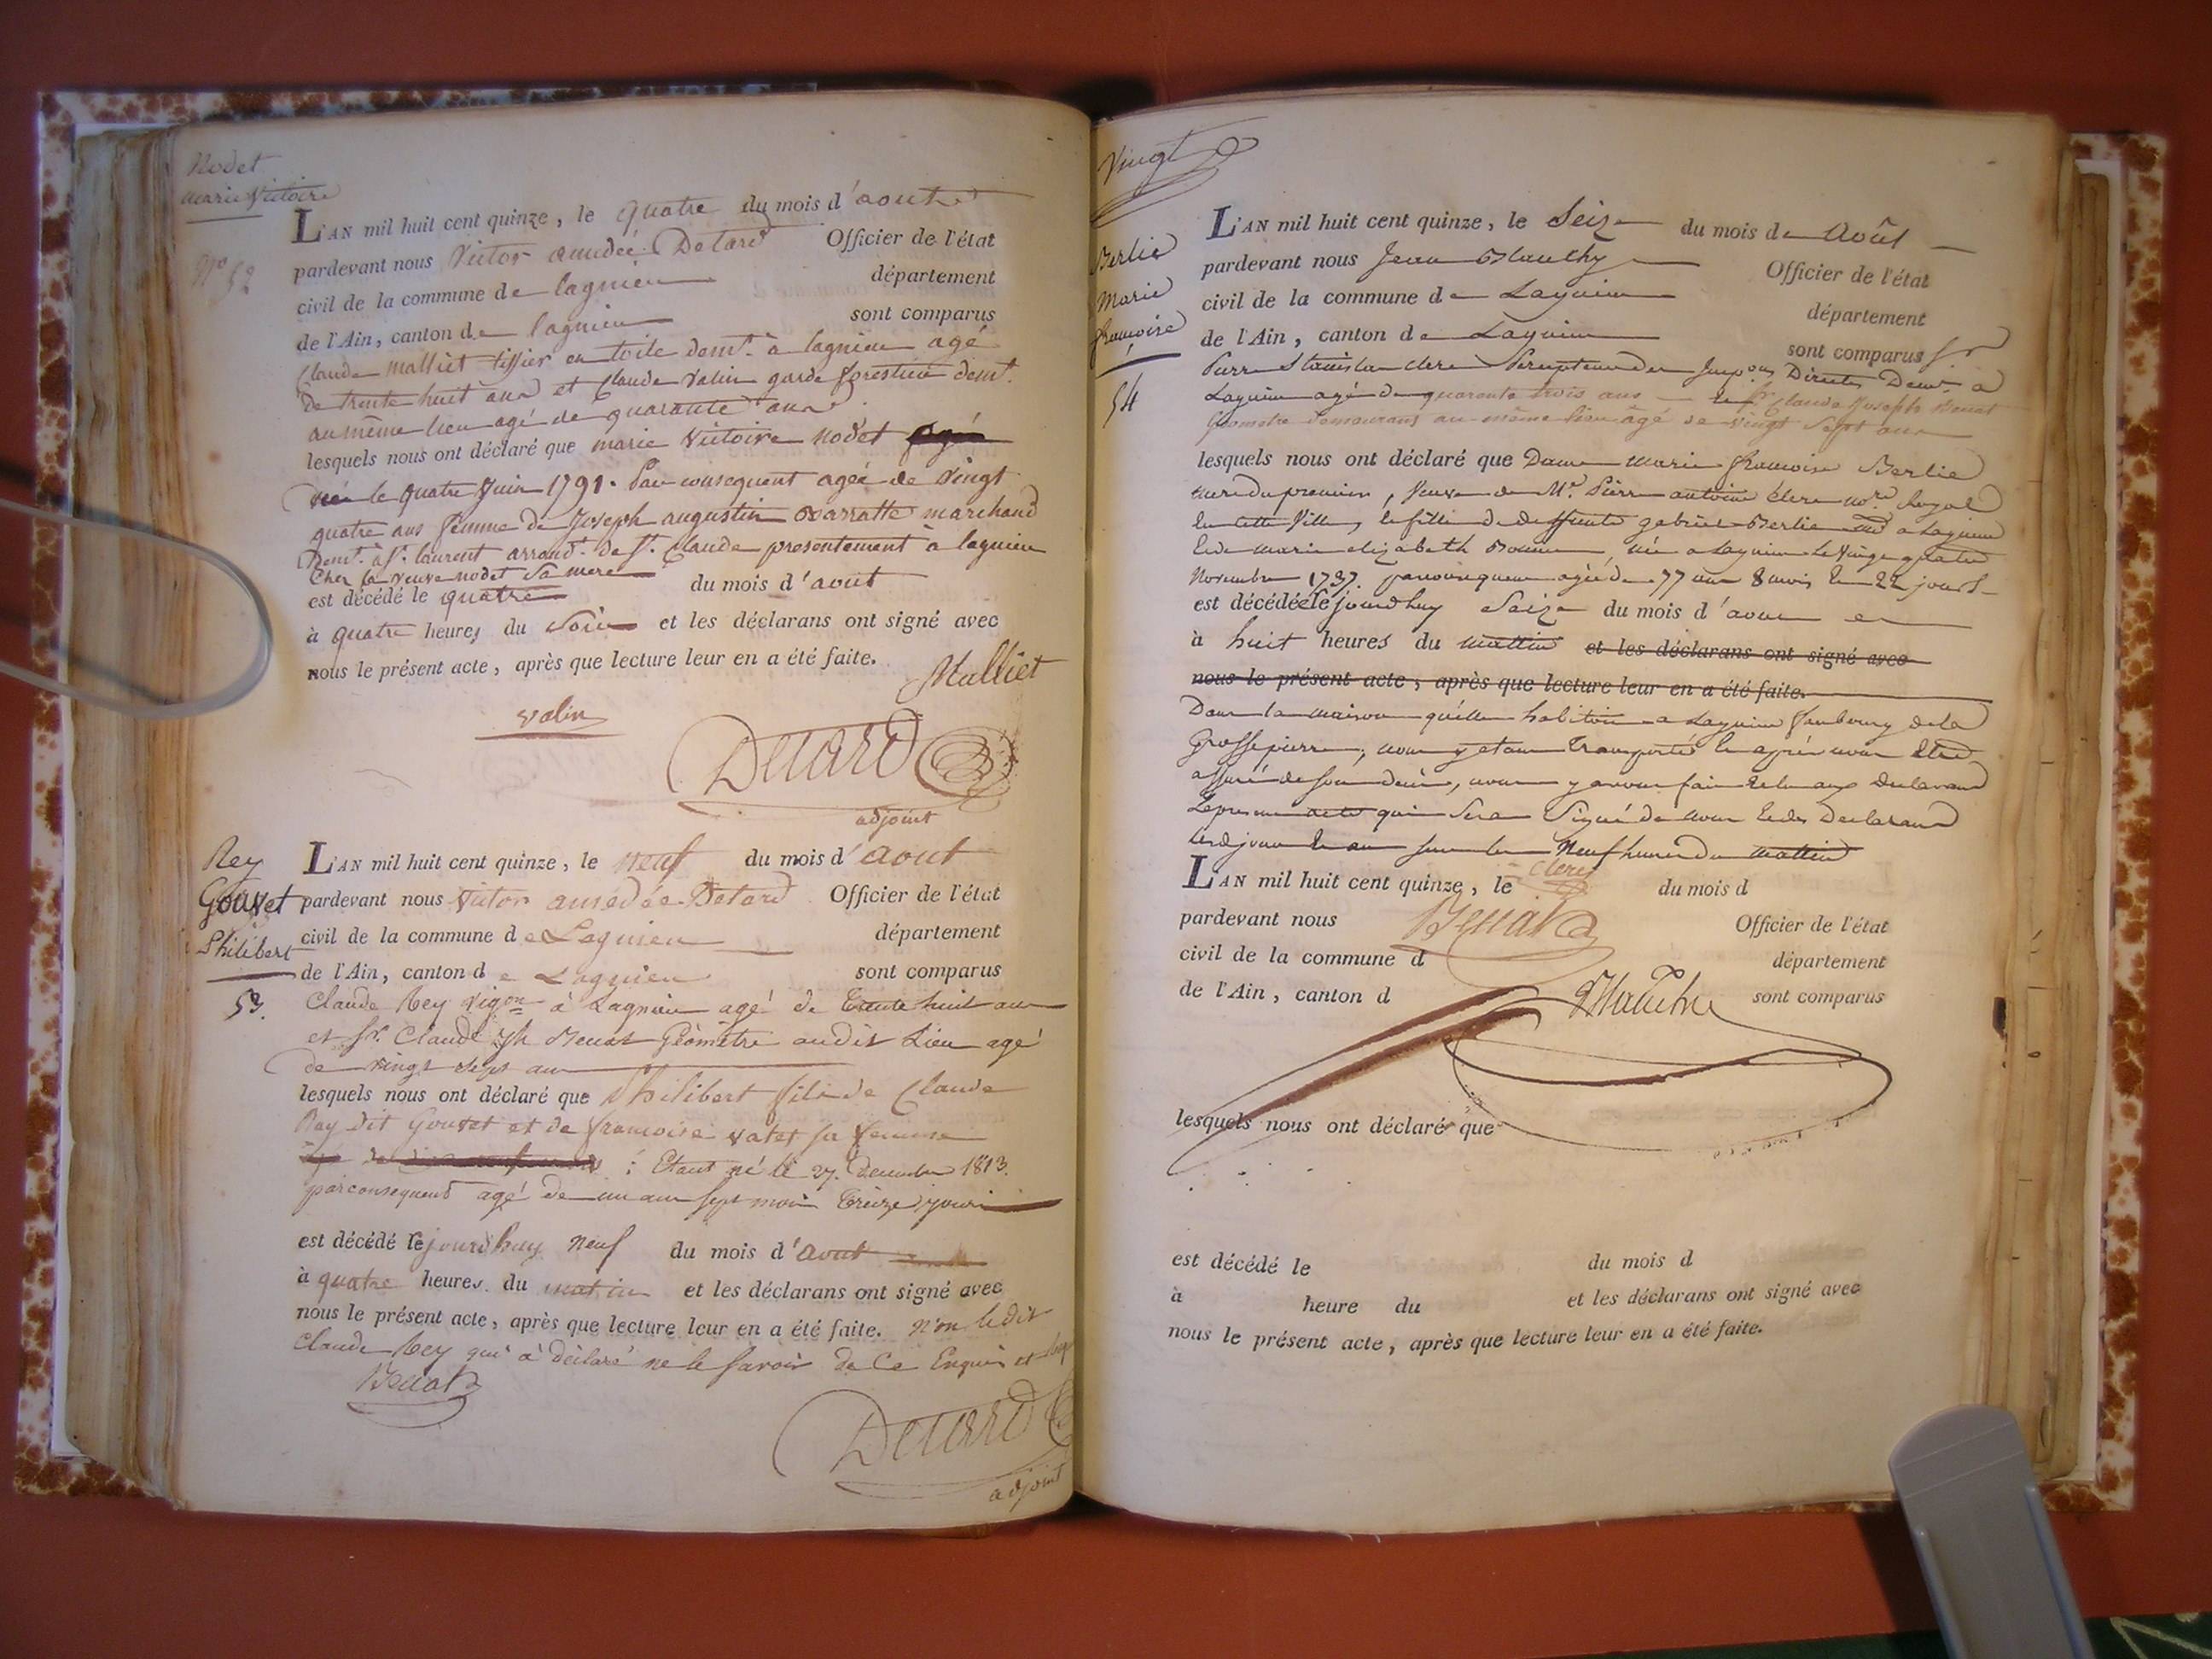 Nodet
marie Victoire
N° 52
L'AN mil huit cent quinze, le quatre du mois d'aout
pardevant nous Victor amedée Detard Officier de l'état
civil de la commune de lagnieu département
de l'Ain, canton de lagnieu sont comparus
Claude malliet tissier en toile demt. à lagnieu agé
de trente huit ans et Claude valin garde forestier demt.
au même lieu agé de quarante ans
lesquels nous ont déclaré que marie Victoire nodet
née le quatre Juin 1791. Par consequent agée de vingt
quatre ans femme de Joseph augustin marchand
demt. à st. laurent arrondt. de st. Claude presentement à lagnieu
Chez la veuve nodet sa mere
est décédé le quatre du mois d'aout
à quatre heures du soir et les déclarans ont signé avec
nous le présent acte, après que lecture leur en a été faite.
Malliet
valin
Detard
adjoint
Rey
Gouvet
Philibert
53.
L'AN mil huit cent quinze, le neuf du mois d'aout
pardevant nous Victor amédée Detard Officier de l'état
civil de la commune de Lagnieu département
de l'Ain, canton de Lagnieu sont comparus
Claude Rey vigon à Lagnieu agé de trente huit ans
et Sr. Claude Jh Benat Géomètre audit Lieu agé
de vingt sept ans
lesquels nous ont déclaré que Philibert fils de Claude
Rey dit Gouvet et de francoise vatet sa femme
: Etant né le 27. decembre 1813.
parconsequent agé de un an sept mois treize jours
est décédé cejourdhuy neuf du mois d'aout
à quatre heures du matin et les déclarans ont signé avec
nous le présent acte, après que lecture leur en a été faite. non ledit
Claude Rey qui à déclaré ne le savoir de ce Enquis et
Benat
Detard
adjoint
Vingt
Berlie
Marie
françoise
54
L'AN mil huit cent quinze, le Seize du mois de Août
pardevant nous Jean Officier de l'état
civil de la commune de Lagnieu département
de l'Ain, canton de Lagnieu sont comparus Sr
Pierre Stanislas Clerc Percepteur des Impons Directes Demt. a
Lagnieu agé de quarante trois ans et Sr Claude Joseph Benat
géometre demeurant au même lieu âgé de vingt sept ans
lesquels nous ont déclaré que Dame marie francoise Berlie
mere du premier, veuve de Mr. Pierre antoine Clerc nore. Royal
En cette Ville, et fille de deffunts gabriel Berlie md a Lagnieu
Et de marie elizabeth, née a Lagnieu le vingt quatre
Novembre 1737. parconsequent agée de 77 ans 8 mois et 22 jours
est décédée cejourdhuy Seize du mois d'aout
à huit heures du mattin et les déclarans ont signé avec
nous le présent acte, après que lecture leur en a été faite.
Dans la maison qu'elle habitoit a Lagnieu faubourg de la
Grosse pierre, nous y etant transporté et après nous etre
assuré de son decès, nous y avons fait lecture aux declarans
Le present acte qui sera Signé de nous et des declarans
lesd jour et an sur les neuf heures du mattin
Clerc
L'AN mil huit cent quinze, le du mois d
pardevant nous Benat Officier de l'état
civil de la commune d département
de l'Ain, canton d sont comparus
lesquels nous ont déclaré que
est décédé le du mois d
à heure du et les déclarans ont signé avec
nous le présent acte, après que lecture leur en a été faite.